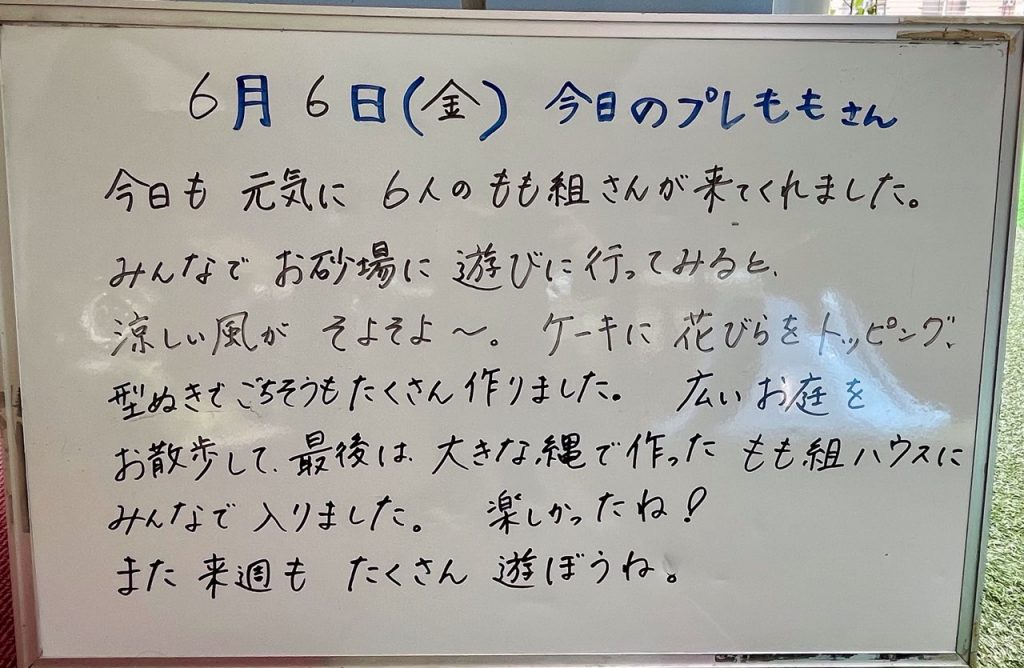 6月6日(金) 今日のプレももさん
今日も 元気に 6人のもも組さんが来てくれました。
みんなで お砂場に 遊びに行ってみると、
涼しい風が そよそよ〜。 ケーキに 花びらをトッピング、
型ぬきでごちそうもたくさん作りました。 広いお庭を
お散歩して、最後は、大きな縄で作った もも組ハウスに
みんなで 入りました。 楽しかったね！
また来週も たくさん 遊ぼうね。